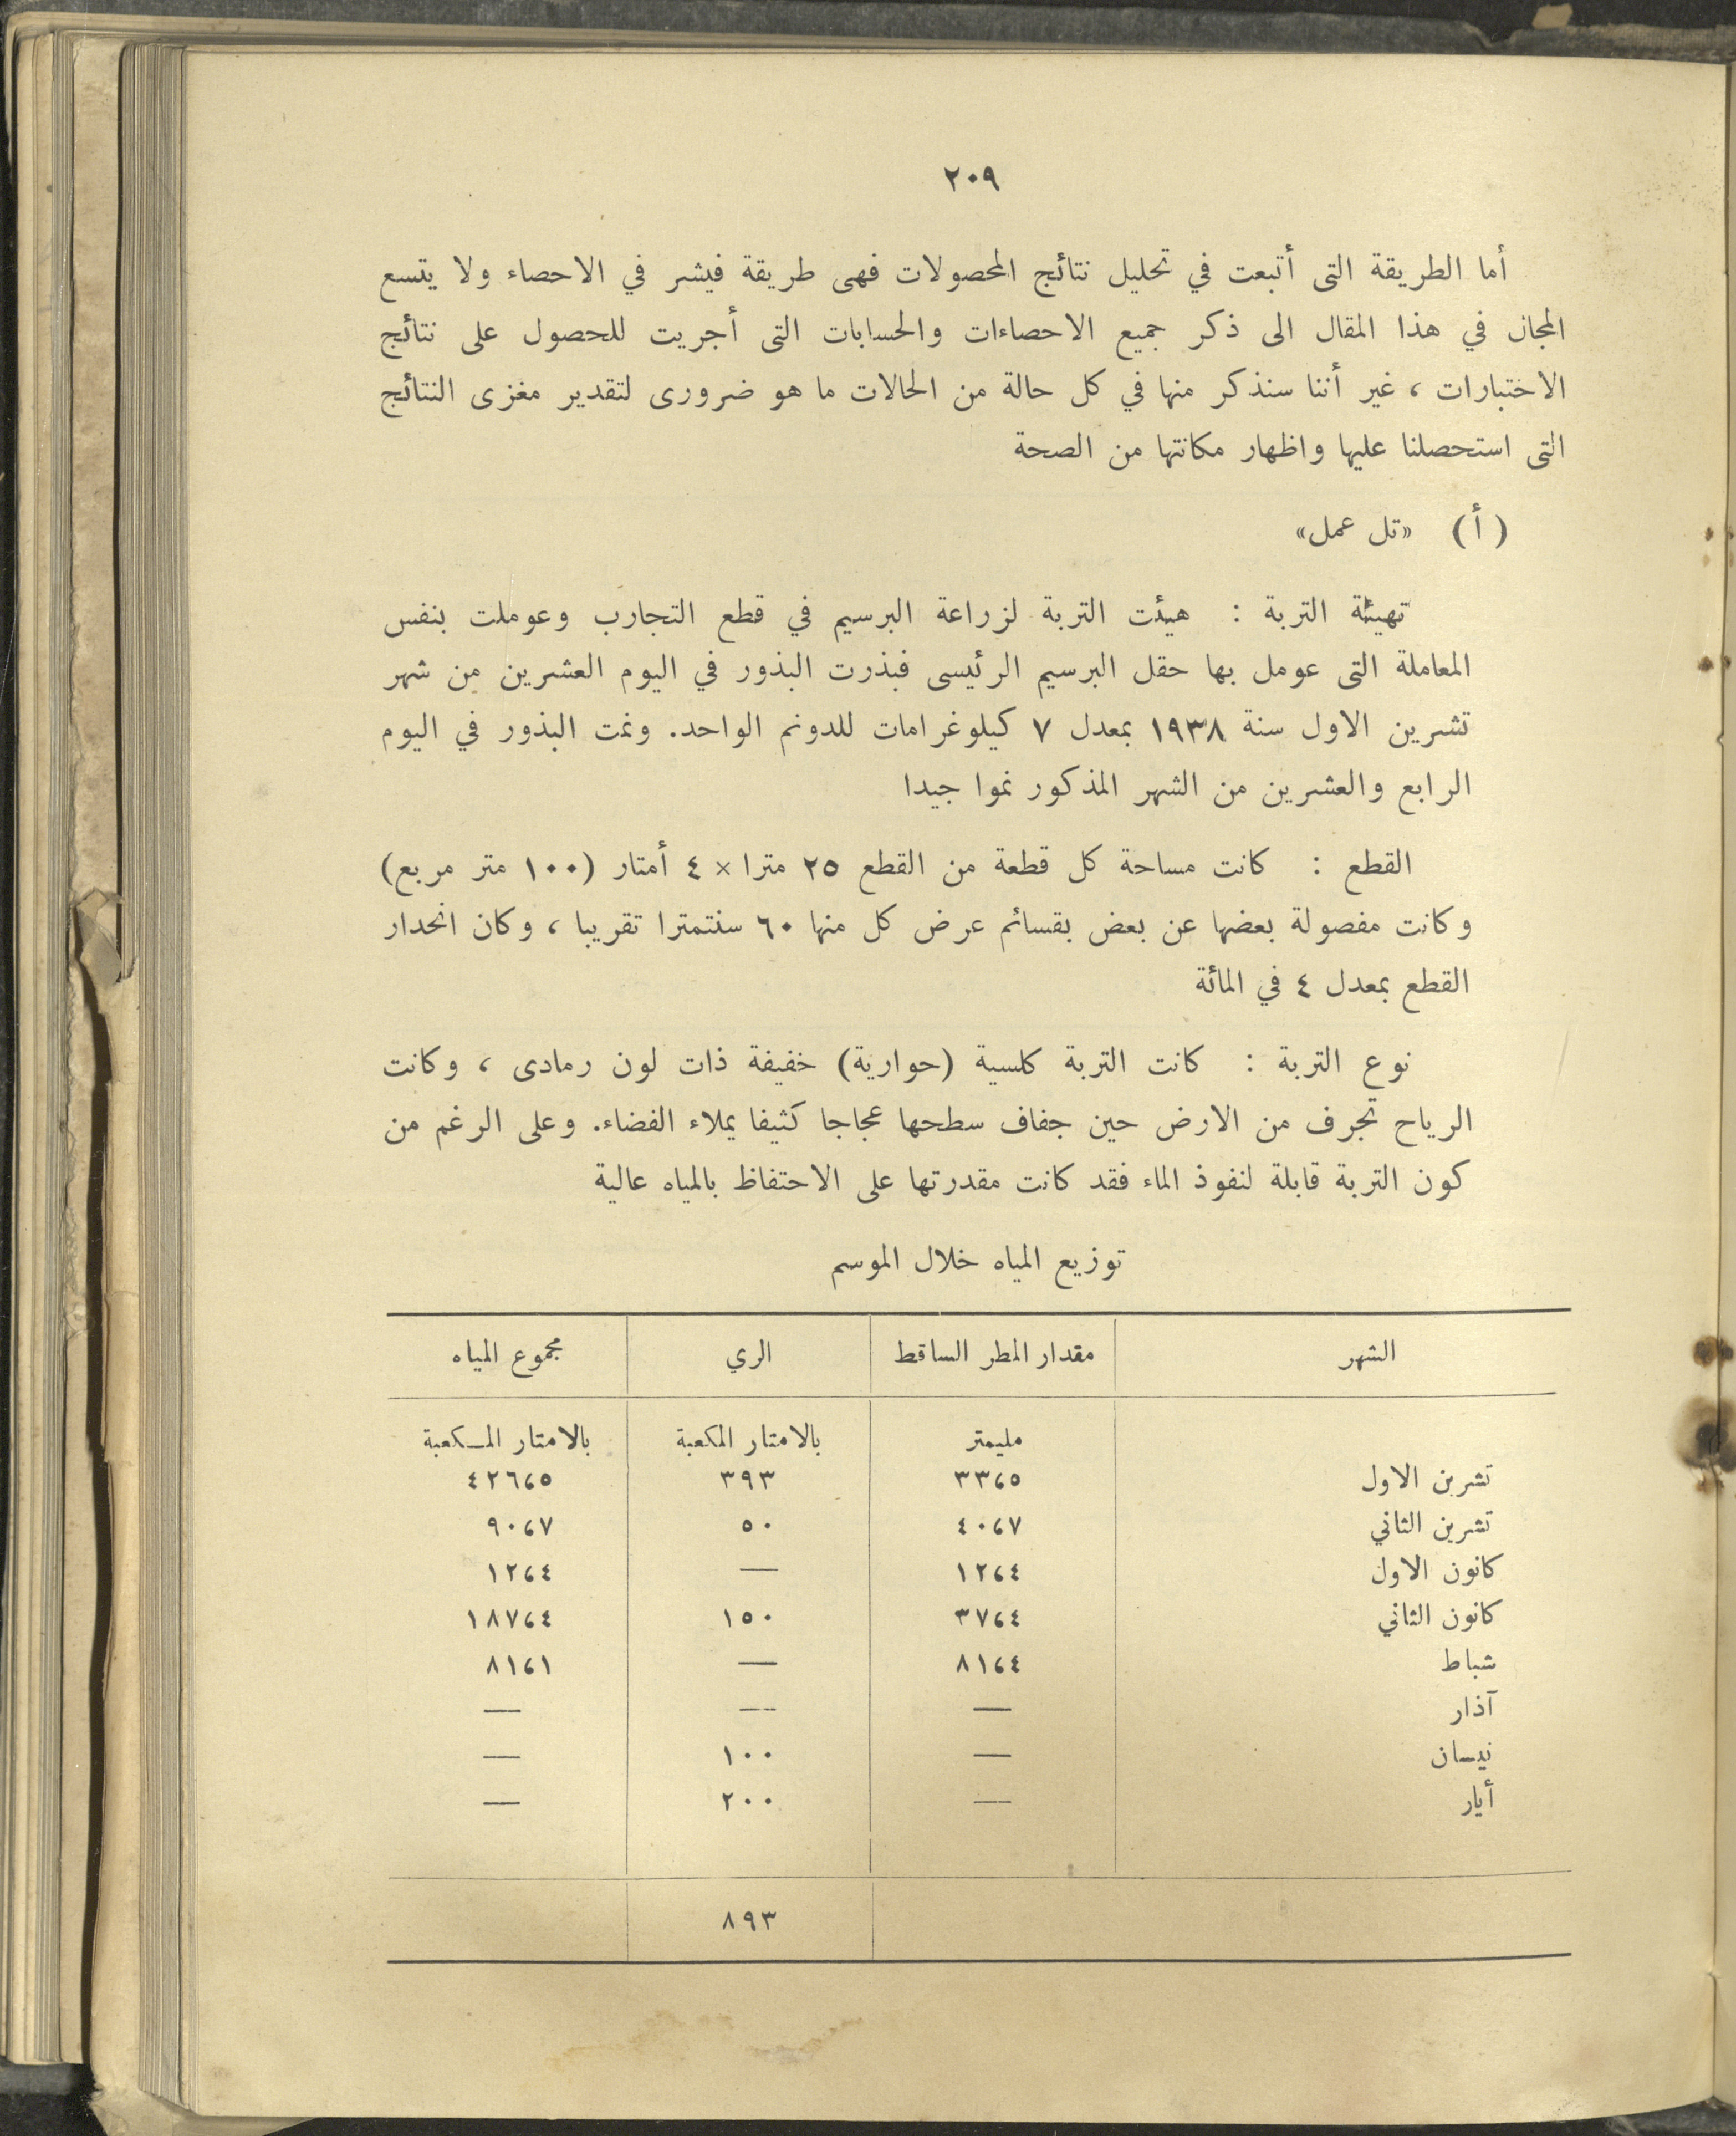 ٢٠٩
أما الطريقة التى أتبعت في تحليل نتائج المحصولات فهى طريقة فيشر في الاحصاء ولا يتسع
المجال في هذا المقال الى ذكر جميع الاحصاءات والحسابات التى أجريت للحصول على نتائج
الاختبارات ، غير أننا سنذكر منها في كل حالة من الحالات ما هو ضرورى لتقدير مغزى النتائج
التى استحصلنا عليها واظهار مكانتها من الصحة
(أ) «تل عمل»
تهيئة التربة : هيئت التربة لزراعة البرسيم في قطع التجارب وعوملت بنفس
المعاملة التى عومل بها حقل البرسيم الرئيسى فبذرت البذور في اليوم العشرين من شهر
تشرين الاول سنة ١٩٣٨ بمعدل ٧ كيلوغرامات للدونم الواحد. ونمت البذور في اليوم
الرابع والعشرين من الشهر المذكور نموا جيدا
القطع : كانت مساحة كل قطعة من القطع ٢٥ مترا × ٤ أمتار (١٠٠ متر مربع)
وكانت مفصولة بعضها عن بعض بقسائم عرض كل منها ٦٠ سنتمترا تقريبا ، وكان انحدار
القطع بمعدل ٤ في المائة
نوع التربة : كانت التربة كلسية (حوارية) خفيفة ذات لون رمادى ، وكانت
الرياح تجرف من الارض حين جفاف سطحها عجاجا كثيفا يملاء الفضاء. وعلى الرغم من
كون التربة قابلة لنفوذ الماء فقد كانت مقدرتها على الاحتفاظ بالمياه عالية
توزيع المياه خلال الموسم
الشهر مقدار المطر الساقط الري مجموع المياه
مليمتر بالامتار المكعبة بالامتار المكعبة
تشرين الاول ٣٣،٥ ٣٩٣ ٤٢٦،٥
تشرين الثاني ٤٠،٧ ٥٠ ٩٠،٧
كانون الاول ١٢،٤ — ١٢،٤
كانون الثاني ٣٧،٤ ١٥٠ ١٨٧،٤
شباط ٨١،٤ — ٨١،١
آذار — — —
نيسان — ١٠٠ —
أيار — ٢٠٠ —
٨٩٣